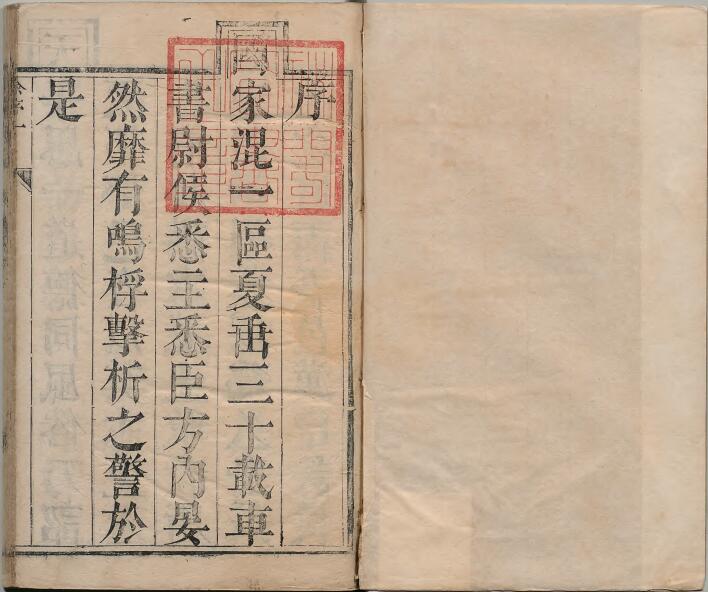 序
國家混一區夏垂三十載車
書尉侯悉主悉臣方內晏
然靡有鳴桴擊柝之警於
是